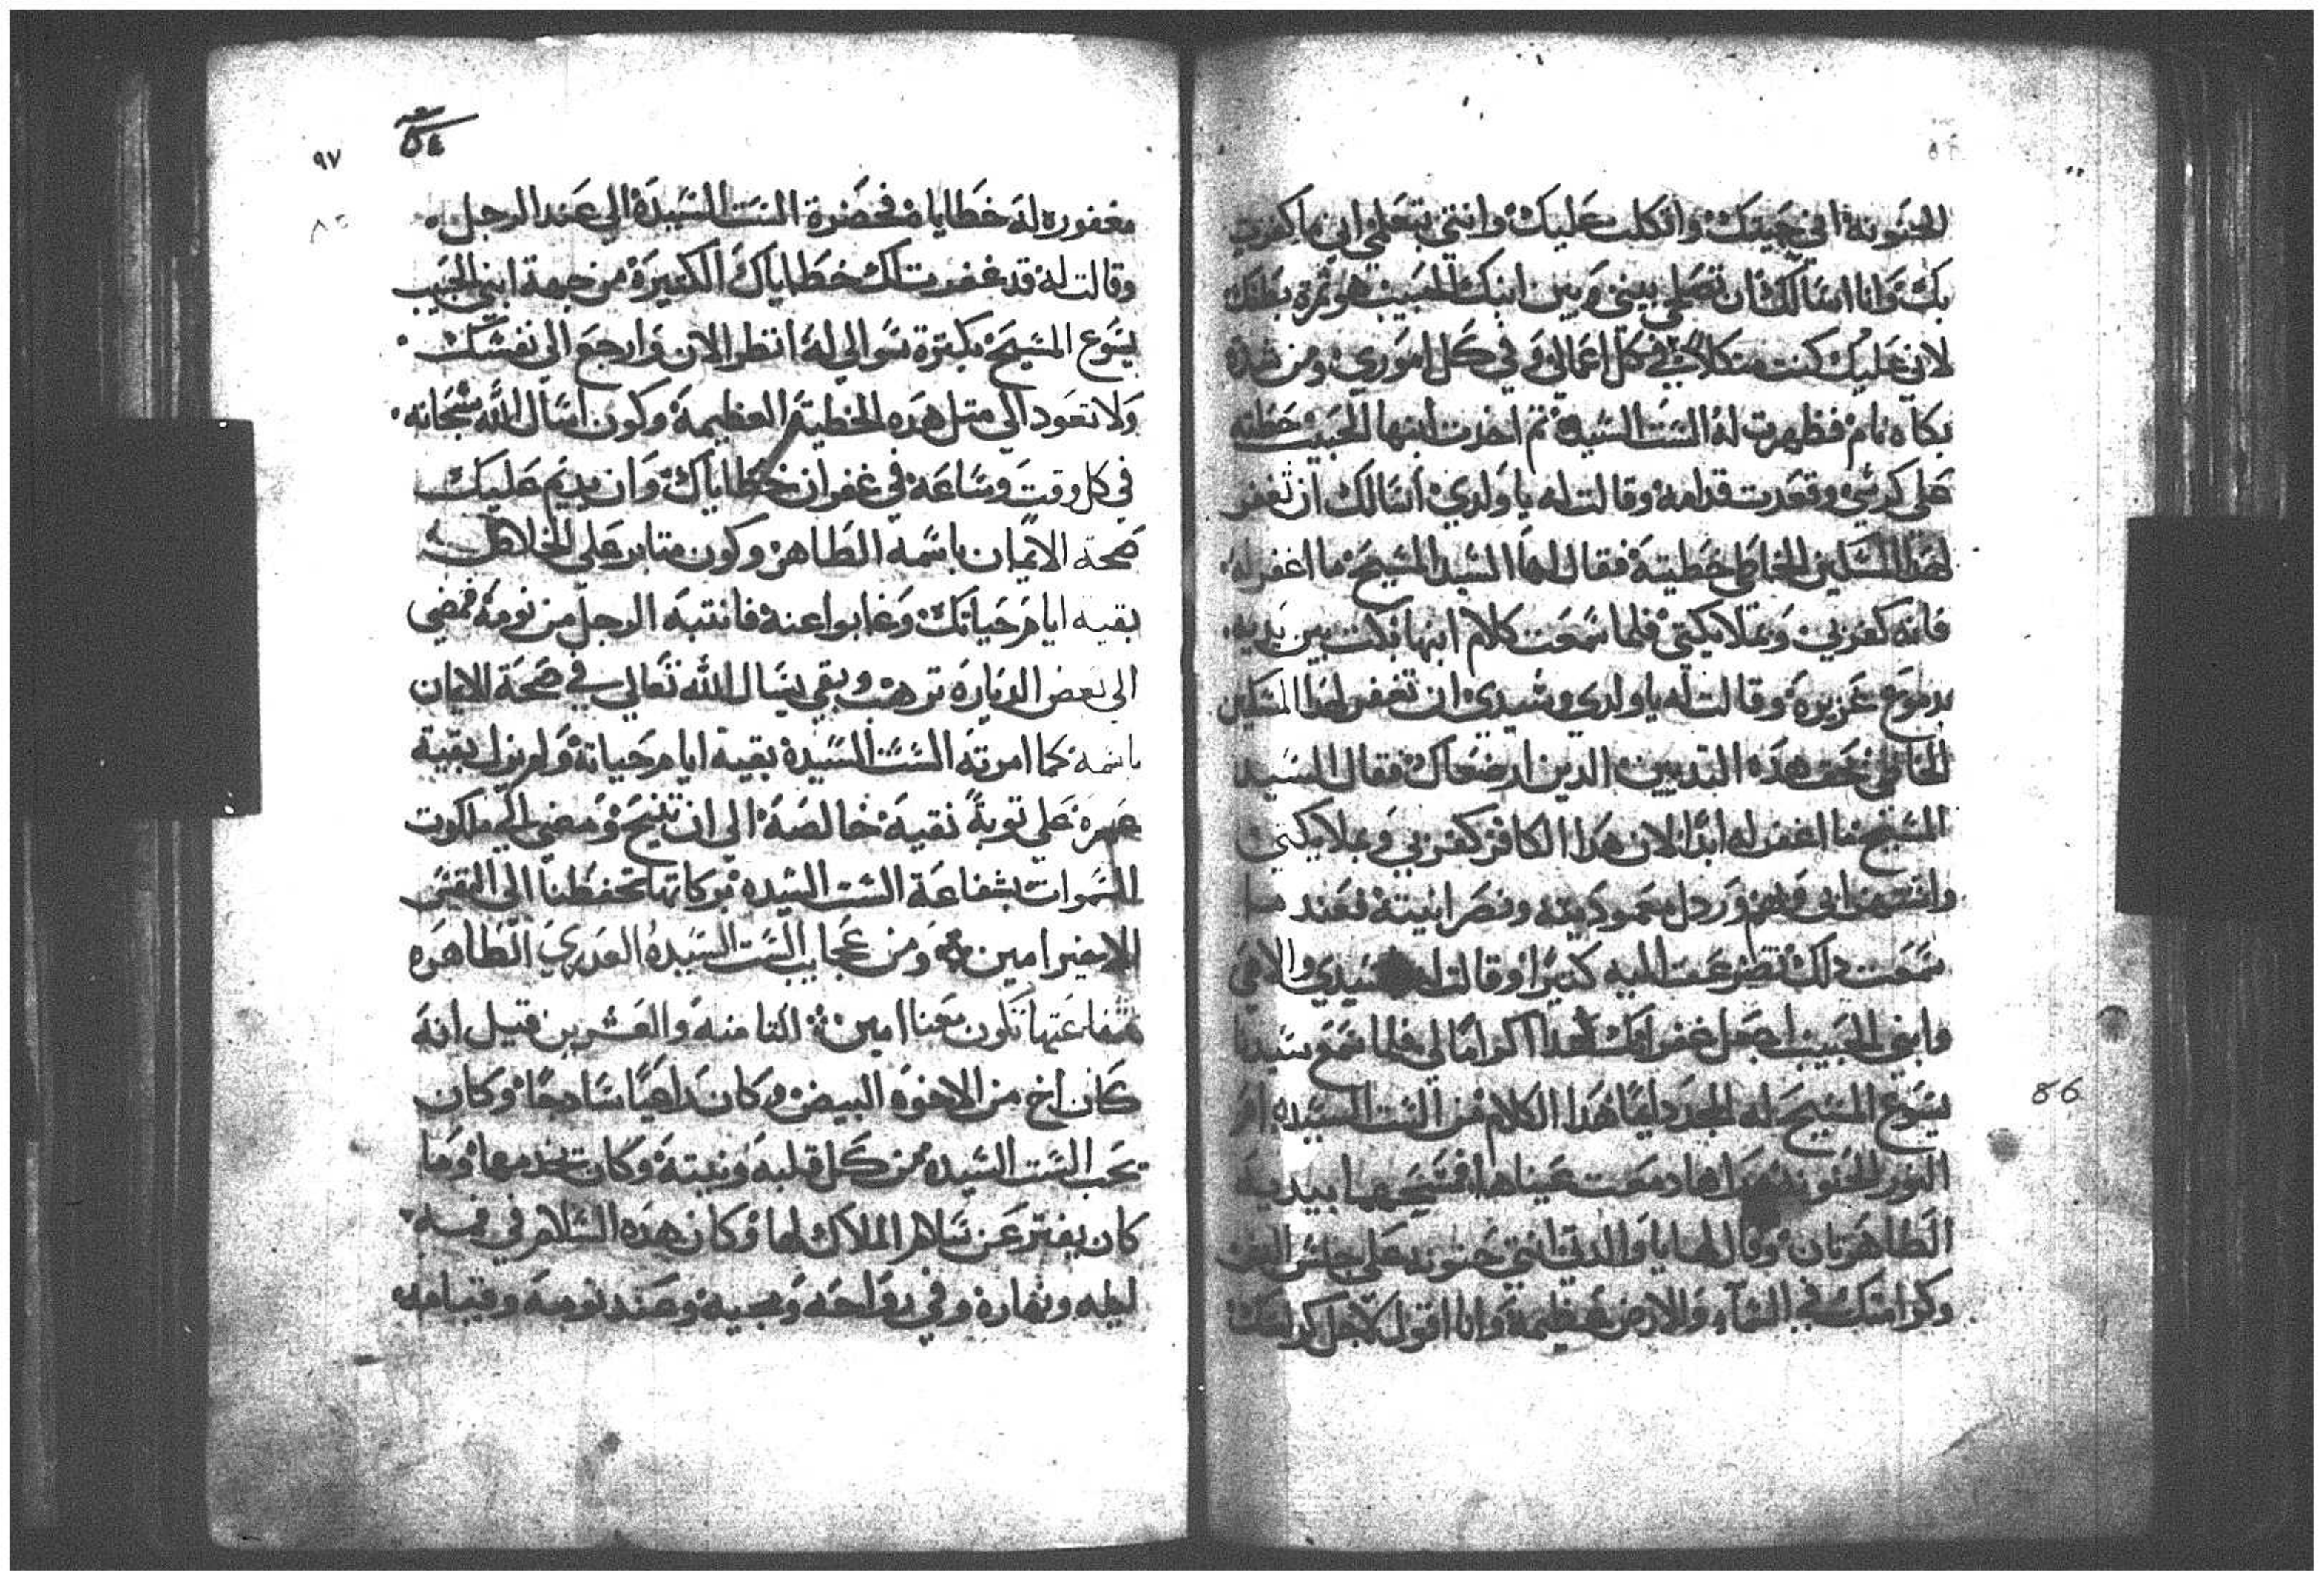 الحنونه اني حبيتك واتكلت عليك وانتي تعلمي اني ما كفرت
بك وانا اسالك ان تصلحي بيني وبين ابنك الحبيب هو ثمرة بطنك
لاني عليك كنت متكلا في كل اعمالي وفي كل اموري ومن شدة
بكاه نام فظهرت له الست السيده تم اخدت ابنها الحبيب حطته
على كرسي وقعدت قدامه وقالت له يا ولدي اسالك ان تغفر
لهدا المسكين الخاطي خطيته فقال لها السيد المسيح ما اغفر له
فانه كفر بي وبملايكتي فلما سمعت كلام ابنها بكت بين يديه
بدموع غزيره وقالت له يا ولدي وسيدي ان تغفر لهدا المسكين
الخاطي بحق هده التديين الدين ارضعاك فقال السيد
المسيح ما اغفر له ابدا لان هدا الكافر كفر بي وبملايكتي
وانتهر ورذل معموديته ونصرانيته فعند ما
سمعت دلك تضرعت اليه كتيرا وقالت له سيدي والاهي
وابني الحبيب اجعل غفرانك لهدا اكراما لي فلما سمع سيدنا
يسوع المسيح له المجد دايما هدا الكلام من الست السيده ام
النور الحنونه دمعت عيناها فمسحها بيديه
الطاهرتان وقال لها يا والدتي انتي حنونه على جنس البشر
وكرامتك في السماء والارض عظيمة وانا اقول لاجل كرامتك
٩٧
مغفوره له خطاياه فحضرة الست السيدة الي عند الرجل
وقالت له قد غفرت لك خطاياك الكتيرة من جهة ابني الحبيب
يسوع المسيح بكترة سوالي له انظر الان وارجع الى نفسك
ولا تعود الي متل هده الخطية العظيمة وكون اسال الله سبحانه
في كل وقت وساعة في غفران خطاياك وان يديم عليك
صحة الايمان باسمه الطاهر وكون متابر على الخلاص
بقية ايام حياتك وغابوا عنه فانتبه الرجل من نومه فمضي
الى بعض الدياره ترهب وبقي يسال الله تعالي في صحة الايمان
باسمه كما امرته الست السيدة بقية ايام حياته ولم يزل بقية
عمره على توبة نقية خالصة الي ان تنيح ومضى الي ملكوت
السموات بشفاعة الست السيده بركاتها تحفظنا الى النفس
الاخير امين ومن عجايب الست السيده العدري الطاهره
شفاعتها تكون معنا امين التامنه والعشرين قيل انه
كان اخ من الاخوة البيض وكان راهبا سادجا وكان
يحب الست السيده من كل قلبه ونيته وكان يخدمها وما
كان يفتر عن سلام الملاك لها وكان هده السلام في فمه
ليله ونهاره وفي رواحه ومجيه وعند نومه وقيامه
86